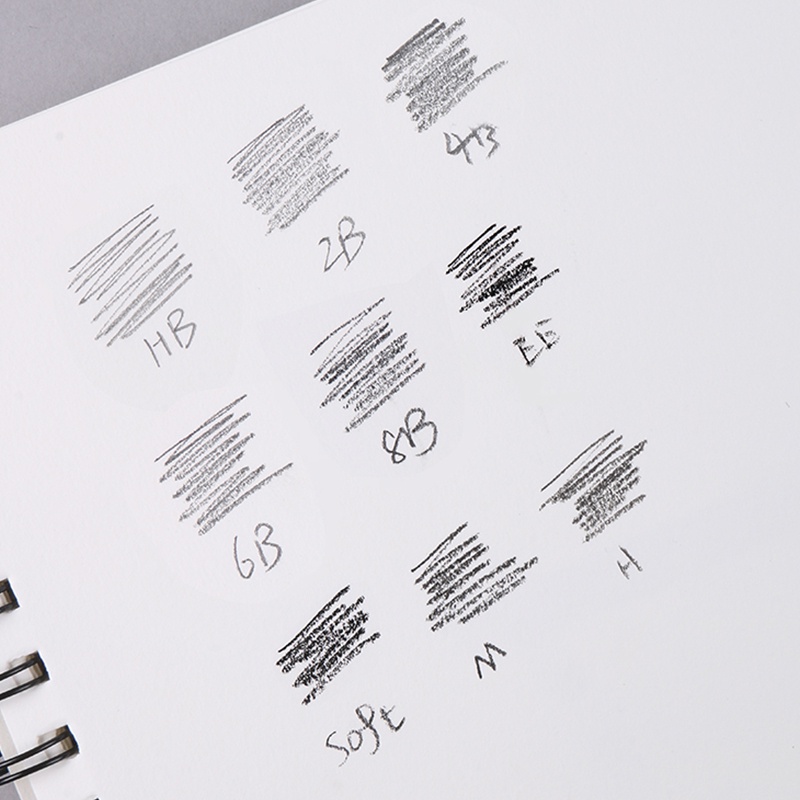 HB
2B
4B
6B
8B
EE
Soft
M
H